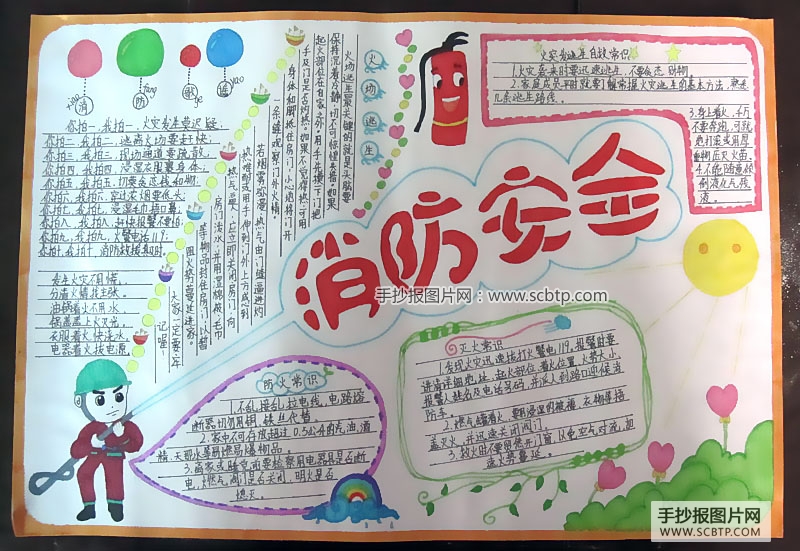 xiāo fáng gē yáo
消 防 歌 谣
你拍一,我拍一,火灾发生要沉疑.
你拍二,我拍二,逃离火场要赶快;
你拍三,我拍三,现场通道要疏散,
你拍四,我拍四,浸湿衣服裹身体;
你拍五,我拍五,切要贪恋钱和物;
你拍六,我拍六,穿过浓烟要低头;
你拍七,我拍七,受湿毛巾捂口鼻;
你拍八,我拍八,赶快报警不害怕
你拍九,我拍九,火警电话119;
你拍十,我拍十,消防救援真及时.
发生火灾不用慌,
分清火情找主张。
油锅着火不用水,
锅盖盖上火灭光,
衣服着火快浇水,
电器着火拔电源
火场逃生
火场逃生最关键的就是头脑要
保持沉着冷静,切不可惊慌失措。如果
起火部位在自家旁,用手先摸一下门把
手及门是否灼热。如果不觉得热,可用
身体和脚抵住房门,小心地将门开
一条缝,观察门外火情。
若烟雾弥漫,热气由门缝逼进灼
热难耐,或用手伸到门外上方感到
热气逼人,应立即关闭房门,向
房门泼水,并用湿棉被、毛巾
等物品封住房门,以暂
阻火势蔓延进家。
大家一定要牢
记喔!
火灾发逃生自救常识
1.火灾袭来时要迅速逃生,不要贪恋财物。
2.家庭成员平时就要了解掌握火灾逃生的基本方法,熟悉
几条逃生路线。
3.身上着火,千万
不要奔跑,可就
地打滚或用厚
重物压灭火苗。
4.不能随意倾
倒液化气残
液。
消防安全
手抄报图片网:www.scbtp.com
防火常识
1.不乱接乱拉电线,电路熔
断器切勿用铜、铁丝代替
2.家中不可存放超过0.5公斤的汽油,酒
精、天那水等易燃易爆物品。
3.离家或睡觉前要检察用电器具是否断
电,燃气阀门是否关闭,明火是否
熄灭。
灭火常识
1.发现火灾迅速拨打火警电119,报警时要
讲清详细地址、起火部位、着火位置、火势大小、
报警人姓名及电话号码,并派人到路口迎候消
防车。
2.燃气罐着火,要用浸湿的被褥、衣物等捂
盖灭火,并迅速关闭阀门。
3.救火时不要贸然开门窗,以免空气对流,加
速火势蔓延。
手抄报图片网
WWW.SCBTP.COM